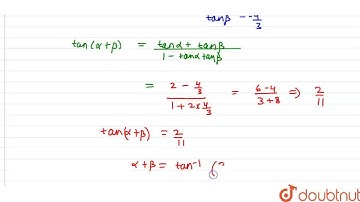 tanβ = -4/3
tan(α+β) = tanα + tanβ / 1 - tanα tanβ
= 2 - 4/3 / 1 + 2×4/3 = 6-4 / 3+8 ⇒ 2/11
tan(α+β) = 2/11
α+β = tan⁻¹ (2
doubtnut